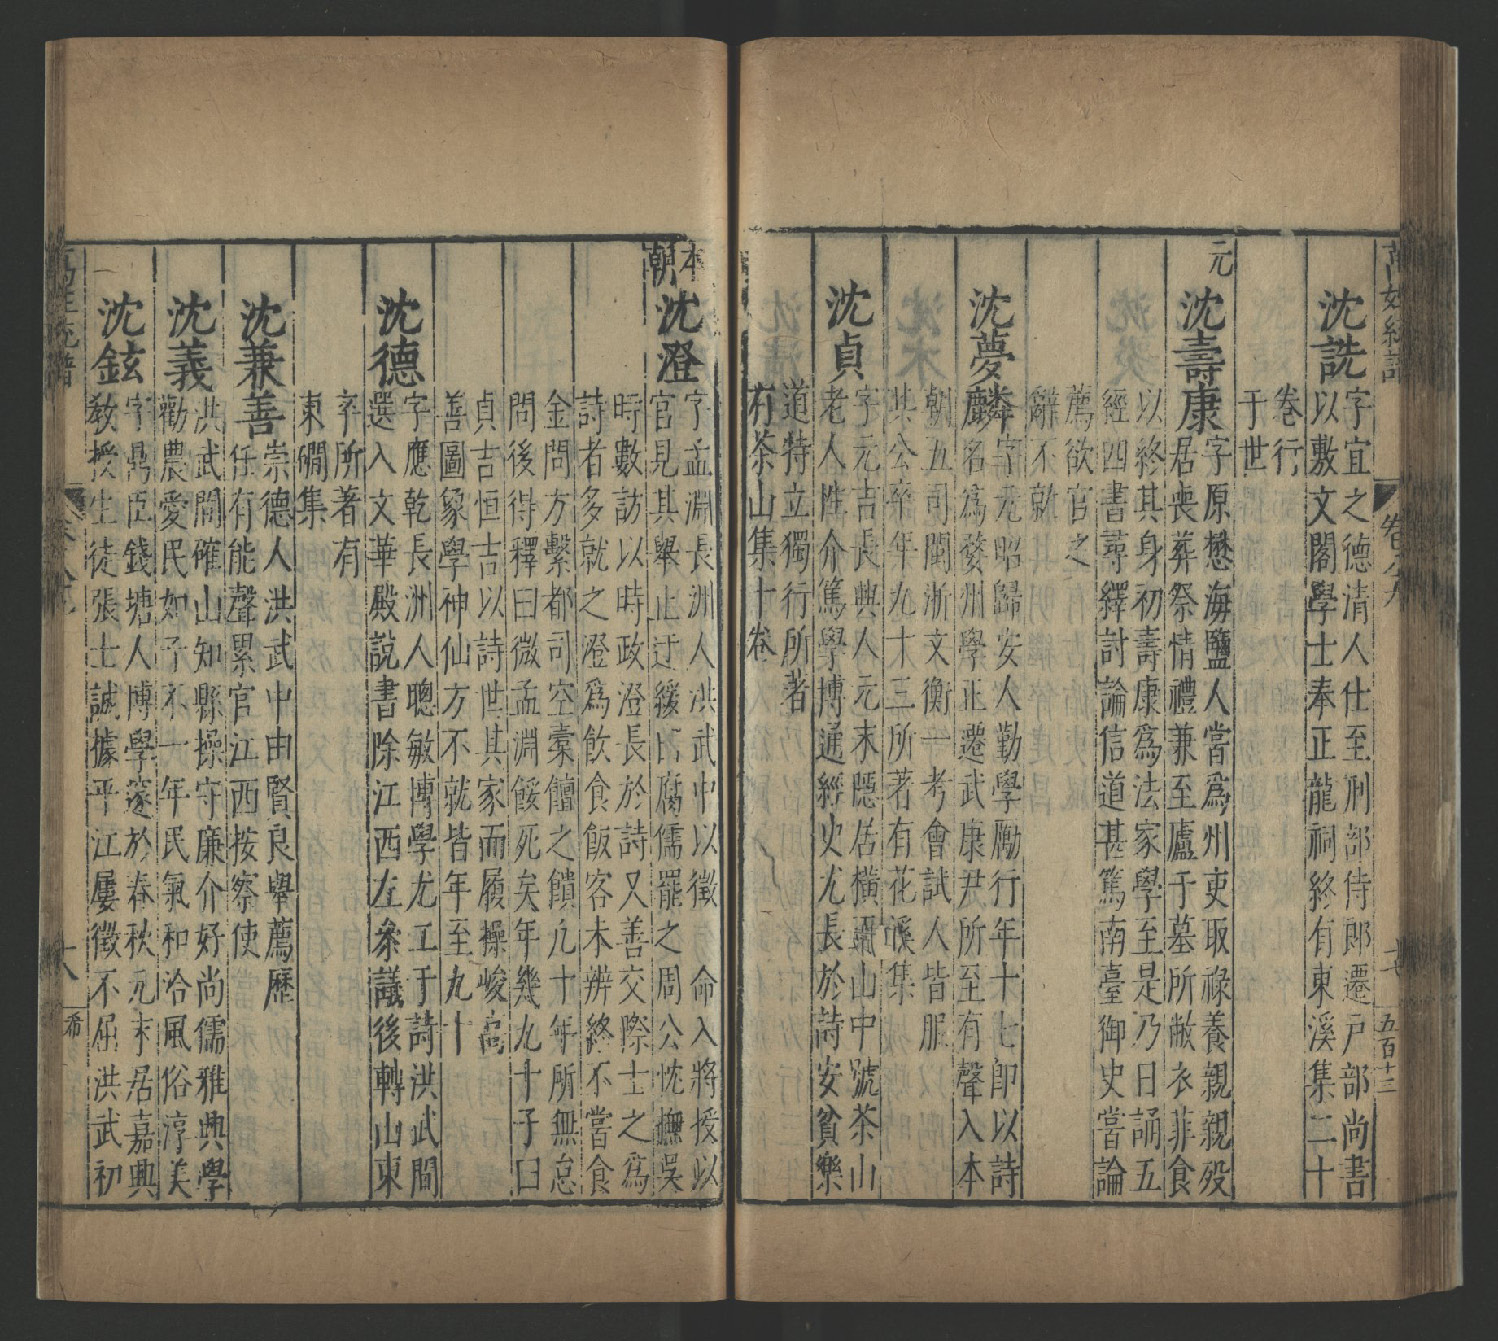 萬姓統譜
卷八九
十七
五百十三
沈詵
字宜之德清人仕至刑部侍郎遷戶部尚書
以敷文閣學士奉正龍祠終有東溪集二十
卷行
于世
元
沈壽康
字原懋海鹽人嘗爲州吏取祿養親親歿
居喪葬祭情禮兼至廬于墓所敝衣菲食
以終其身初壽康爲法家學至是乃日誦五
經四書尋繹討論信道甚篤南臺御史嘗論
薦欲官之
辭不就
沈夢麟
字元昭歸安人勤學勵行年十七即以詩
名爲婺州學正遷武康尹所至有聲入本
朝五司閩浙文衡一考會試人皆服
其公卒年九十三所著有花谿集
沈貞
字元吉長興人元末隱居橫玉山中號茶山
老人性介篤學博通經史尤長於詩安貧樂
道特立獨行所著
有茶山集十卷
本朝
沈澄
字孟淵長洲人洪武中以徵 命入將授以
官見其舉止迂緩曰腐儒罷之周公忱撫吳
時數訪以時政澄長於詩又善交際士之爲
詩者多就之澄爲飲食飯客未辨終不嘗食
金問方繫都司空橐饘之饋凡十年所無怠
問後得釋曰微孟淵餒死矣年幾九十子曰
貞吉恒吉以詩世其家而履操峻高
善圖象學神仙方不就皆年至九十
沈德
字應乾長洲人聰敏博學尤工于詩洪武間
選入文華殿說書除江西左叅議後轉山東
卒所著有
東磵集
沈兼善
崇德人洪武中由賢良舉薦歷
任有能聲累官江西按察使
沈義
洪武間確山知縣操守廉介好尚儒雅典學
勸農愛民如子不一年民氣和洽風俗淳美
沈鉉
字鼎臣錢塘人博學邃於春秋元末居嘉興
敎授生徒張士誠據平江屢徵不屈洪武初
萬姓統譜
十八
希